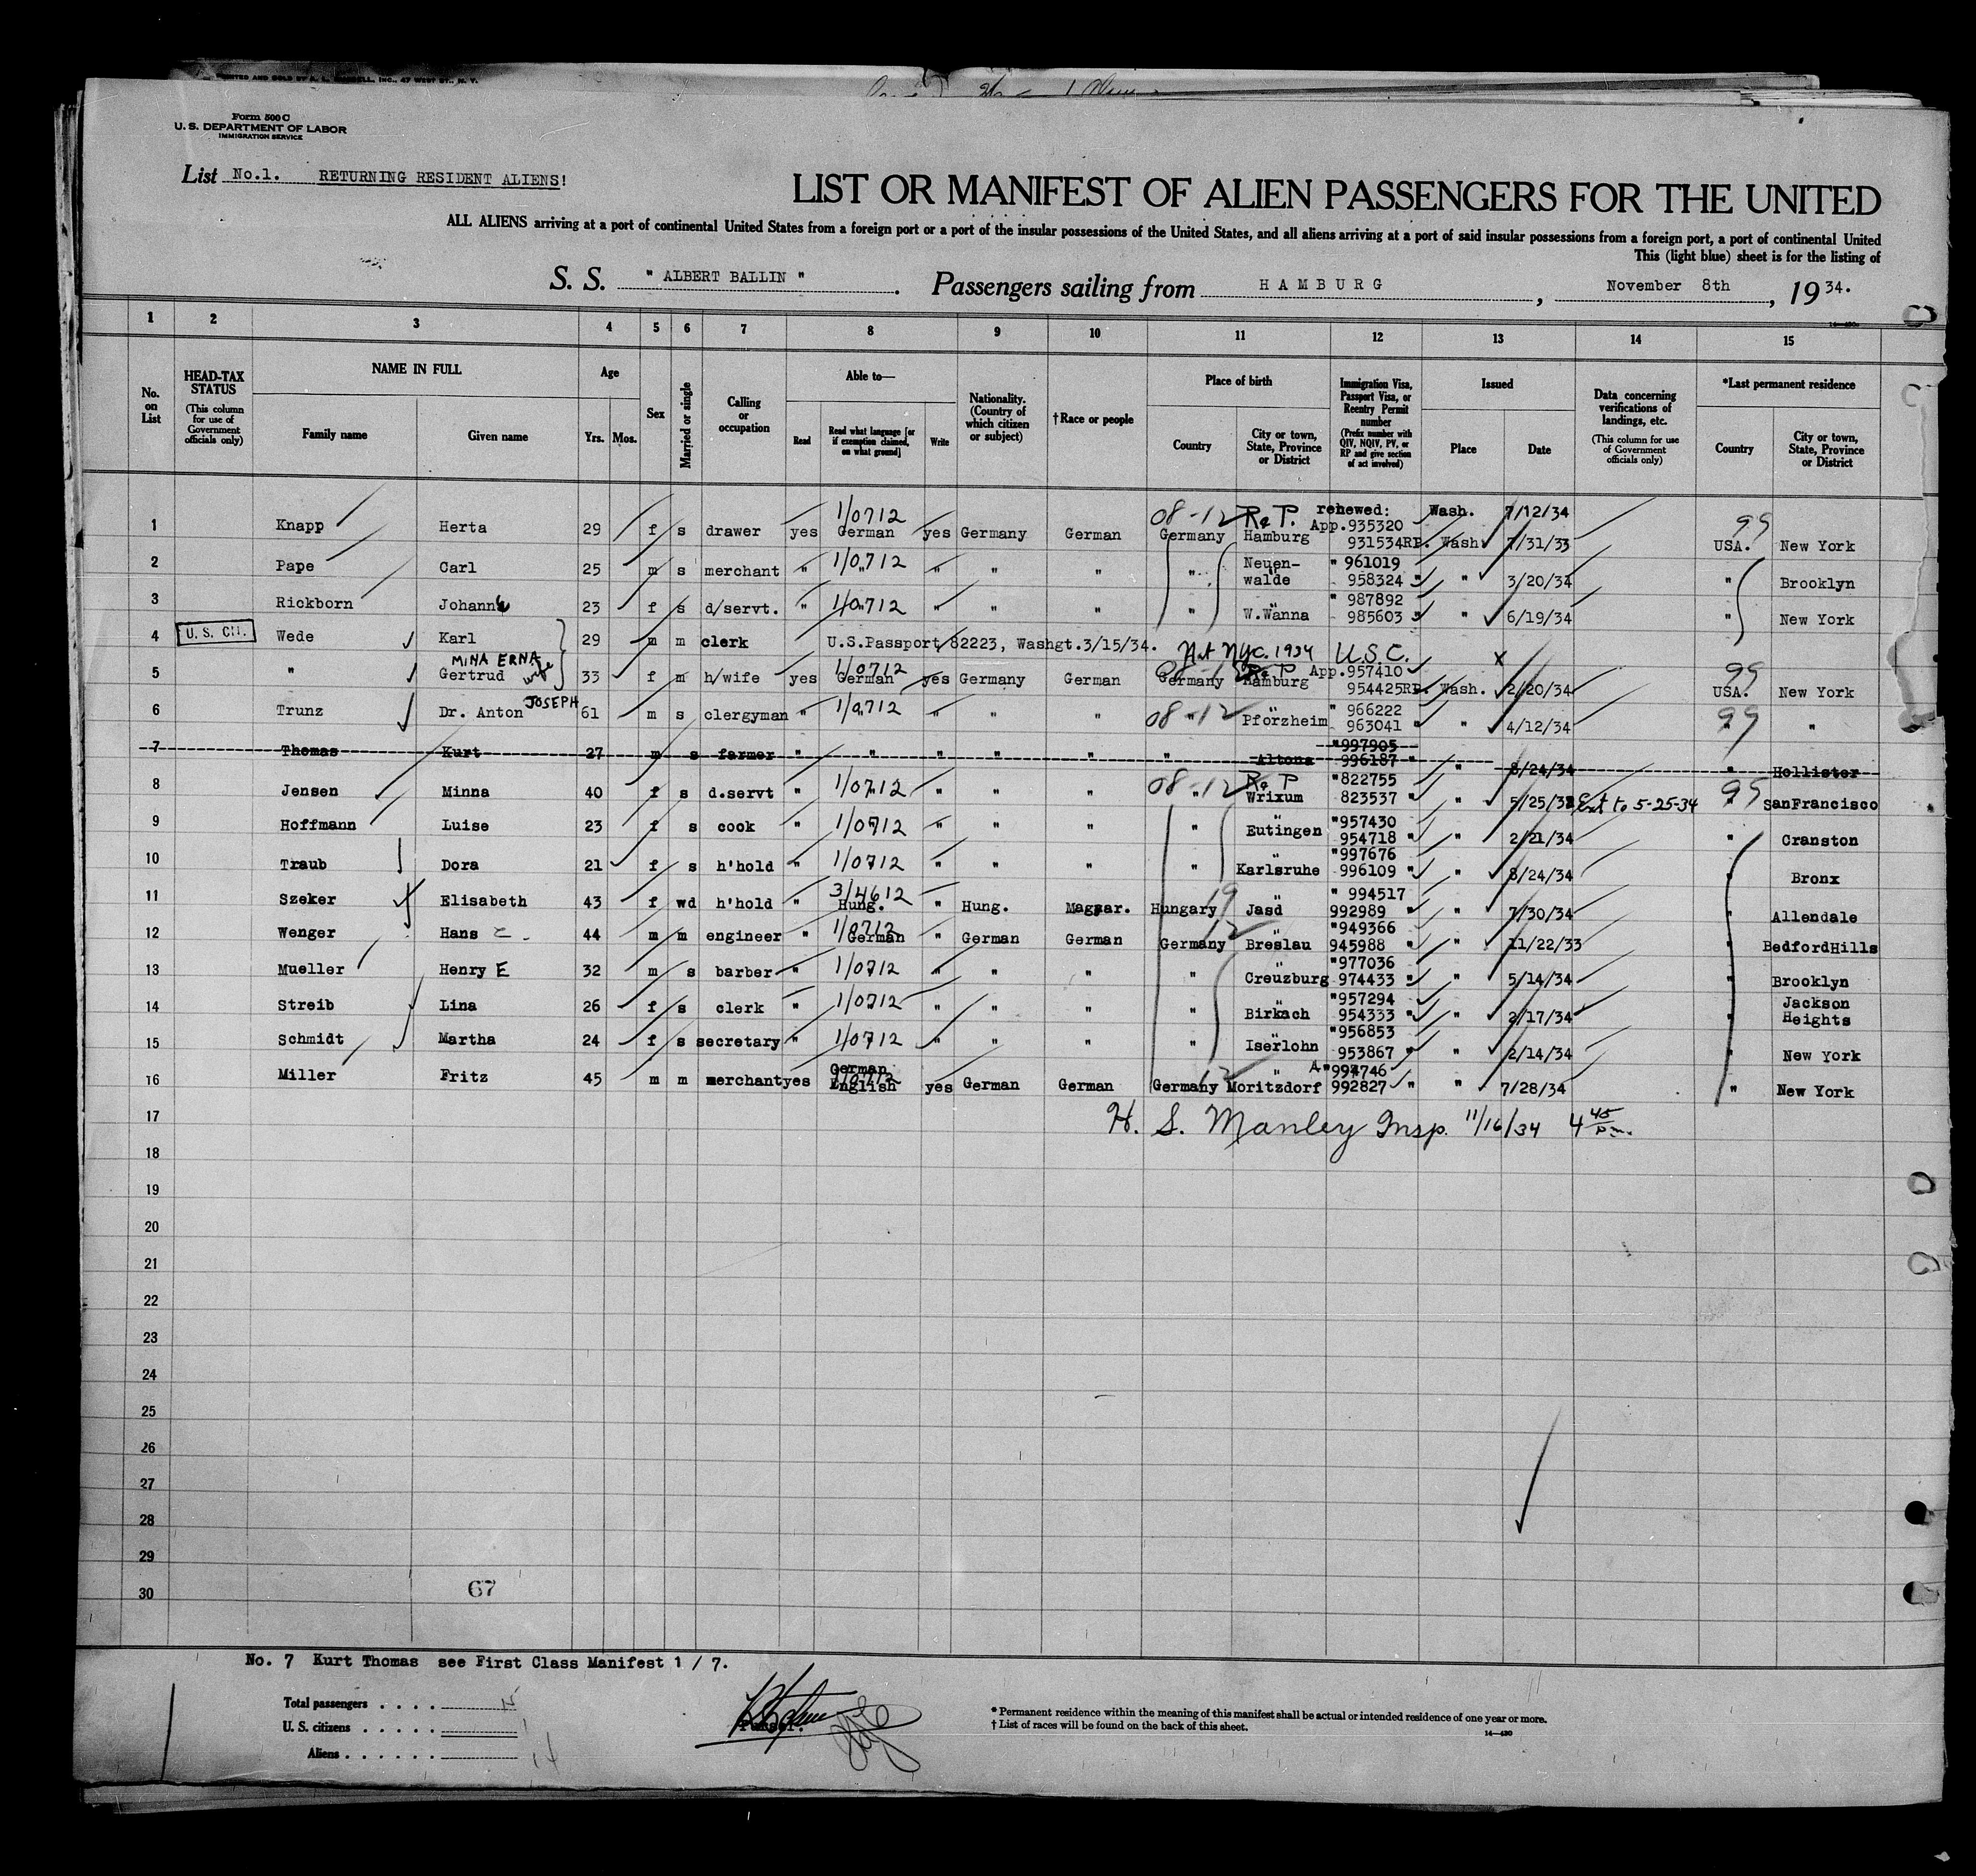 PRINTED AND SOLD BY
INC., 47 WEST ST., N. Y.
Form 500 C
U. S. DEPARTMENT OF LABOR
IMMIGRATION SERVICE
List No.1. RETURNING RESIDENT ALIENS!
LIST OR MANIFEST OF ALIEN PASSENGERS FOR THE UNITED
ALL ALIENS arriving at a port of continental United States from a foreign port or a port of the insular possessions of the United States, and all aliens arriving at a port of said insular possessions from a foreign port, a port of continental United
This (light blue) sheet is for the listing of
S. S. " ALBERT BALLIN " . Passengers sailing from HAMBURG , November 8th , 19 34.
1 2 3 4 5 6 7 8 9 10 11 12 13 14 15
No. on List
HEAD-TAX STATUS (This column for use of Government officials only)
NAME IN FULL Family name Given name
Age Yrs. Mos.
Sex
Married or single
Calling or occupation
Able to— Read Read what language [or if exemption claimed, on what ground] Write
Nationality. (Country of which citizen or subject)
†Race or people
Place of birth Country City or town, State, Province or District
Immigration Visa, Passport Visa, or Reentry Permit number (Prefix number with QIV, NQIV, PV, or RP and give section of act involved)
Issued Place Date
Data concerning verifications of landings, etc. (This column for use of Government officials only)
*Last permanent residence Country City or town, State, Province or District
1 Knapp Herta 29 f s drawer yes 1/0712 German yes Germany German 08-12 Germany R&P. Hamburg renewed: App.935320 931534RP. Wash. Wash. 7/12/34 7/31/33 99 USA. New York
2 Pape Carl 25 m s merchant " 1/0712 " " " " " Neuen-walde " 961019 958324 " " 3/20/34 " Brooklyn
3 Rickborn Johanna 23 f s d/servt. " 1/0712 " " " " " W.Wanna " 987892 985603 " " 6/19/34 " New York
4 U. S. CIT. Wede Karl 29 m m clerk U.S.Passport 82223, Washgt.3/15/34. Nat NYC. 1934 U.S.C. x
5 " MINA ERNA Gertrud wife 33 f m h/wife yes 1/0712 German yes Germany German 08-12 Germany R&P Hamburg App.957410 954425RP. Wash. 2/20/34 99 USA. New York
6 Trunz Dr. Anton JOSEPH 61 m s clergyman " 1/0712 " " " " 08-12 " Pforzheim " 966222 963041 " " 4/12/34 99 " "
7 Thomas Kurt 27 m s farmer " " " " " " Altona "997905 996187 " " 8/24/34 " Hollister
8 Jensen Minna 40 f s d.servt " 1/0712 " " " " 08-12 " R&P Wrixum "822755 823537 " " 5/25/32 Ext to 5-25-34 99 " SanFrancisco
9 Hoffmann Luise 23 f s cook " 1/0712 " " " " " Eutingen "957430 954718 " " 2/21/34 " Cranston
10 Traub Dora 21 f s h'hold " 1/0712 " " " " " Karlsruhe "997676 996109 " " 8/24/34 " Bronx
11 Szeker Elisabeth 43 f wd h'hold " 3/4612 Hung. " Hung. Magyar. Hungary 19 Jasd " 994517 992989 " " 7/30/34 " Allendale
12 Wenger Hans 44 m m engineer " 1/0712 German " German German Germany 12 Breslau "949366 945988 " " 11/22/33 " BedfordHills
13 Mueller Henry E 32 m s barber " 1/0712 " " " " " Creuzburg "977036 974433 " " 5/14/34 " Brooklyn
14 Streib Lina 26 f s clerk " 1/0712 " " " " " Birkach "957294 954333 " " 2/17/34 " Jackson Heights
15 Schmidt Martha 24 f s secretary " 1/0712 " " " " " Iserlohn "956853 953867 " " 2/14/34 " New York
16 Miller Fritz 45 m m merchant yes German English 1/0712 yes German German Germany 12 Moritzdorf "994746 992827 " " 7/28/34 " New York
17 H. S. Manley Insp. 11/16/34 4 45 p.m.
18
19
20
21
22
23
24
25
26
27
28
29
30 67
No. 7 Kurt Thomas see First Class Manifest 1 / 7.
Total passengers . . . . 15
U. S. citizens . . . . . 1
Aliens . . . . . . 14
Purser.
* Permanent residence within the meaning of this manifest shall be actual or intended residence of one year or more.
† List of races will be found on the back of this sheet.
14—430